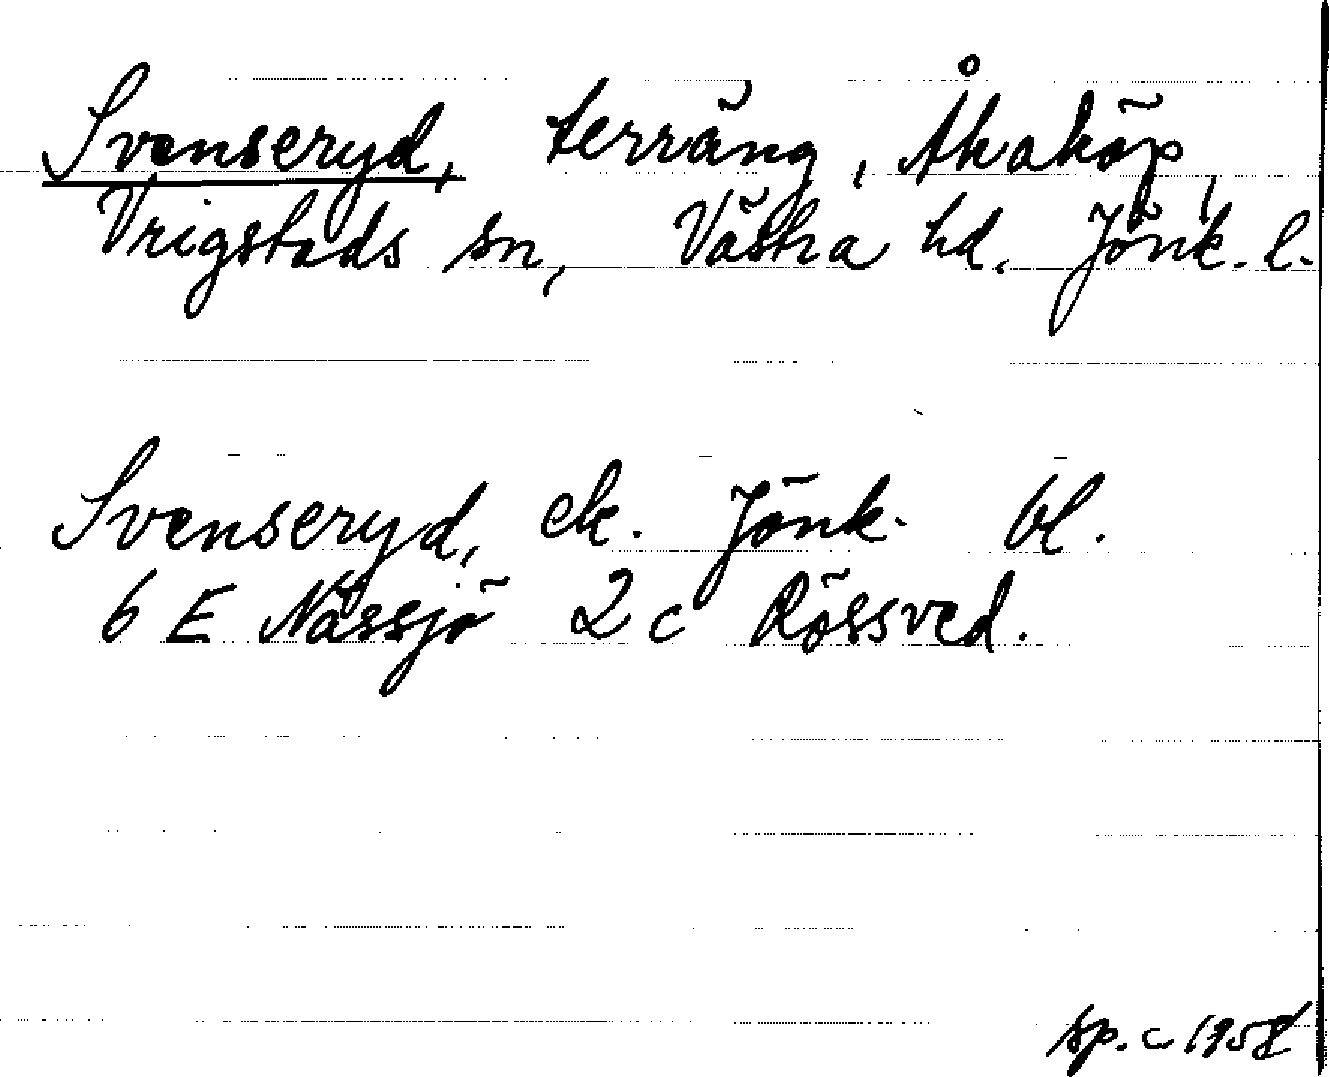 Svenseryd, terräng, Åkaköp,
Vrigstads sn, Västra hd. Jönk. l.
Svenseryd, ek. Jönk. bl.
6 E Nässjö 2 c Rössved.
sp. c 1958